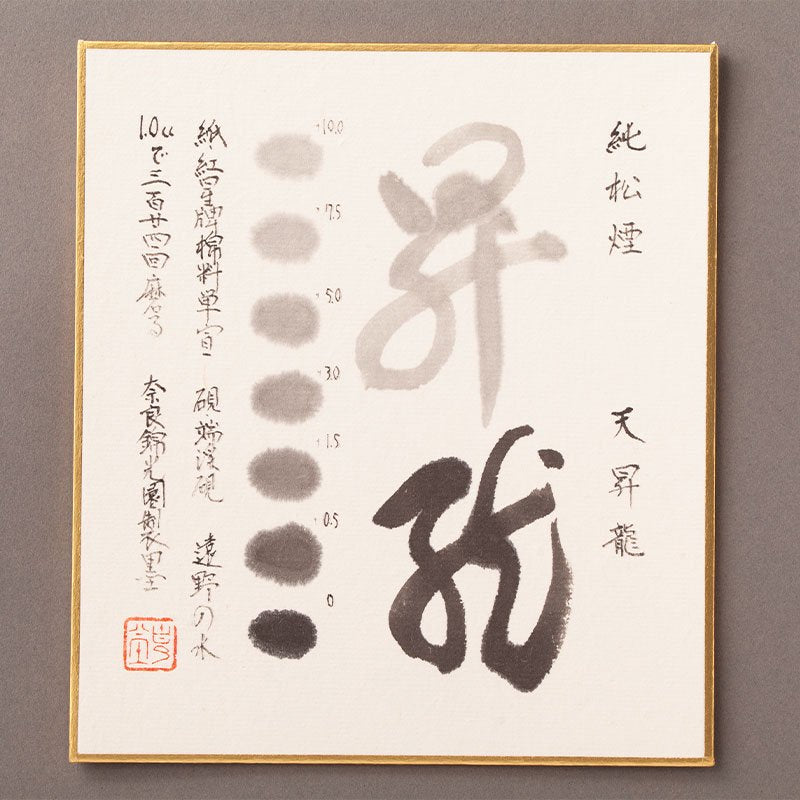 純松煙 天昇龍
昇龍
10.0
7.5
5.0
3.0
1.5
0.5
0
紙・紅星牌棉料単宣 硯・端渓硯 遠野の水
1.0ccで三百廿四回磨墨 奈良錦光園製墨